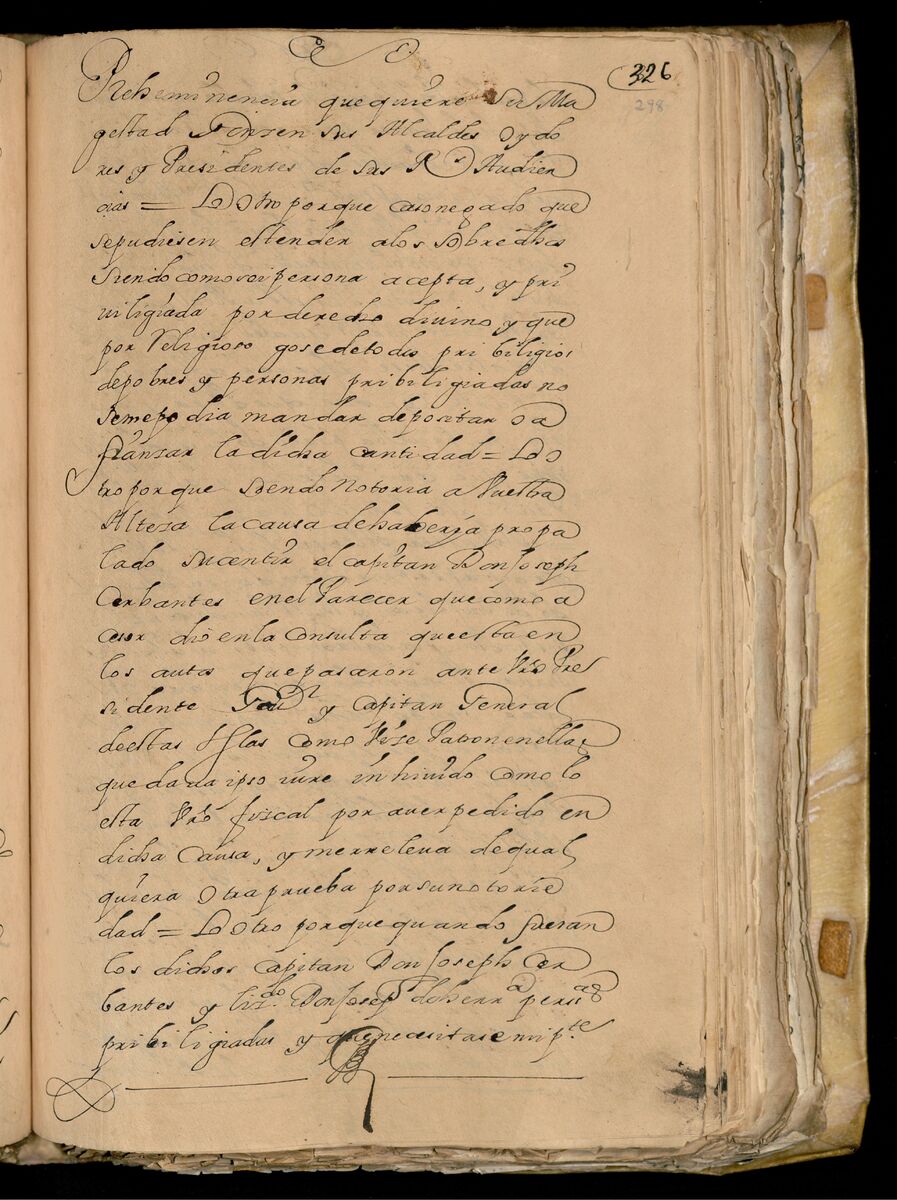 326
298
Preheminencia que quiere Su Ma
gestad Gonzen sus Alcaldes Oydo
res y Presidentes de sus Rs Audien
cias = Lo Otro porque caso negado que
sepudiesen estender alos Sobredhos
Siendo como soi persona acepta, y pri
uiligiada por derecho diuino y que
por Religioso gose de todos pribiligios
depobres y personas pribiligiadas no
Seme podia mandar depositar o a
fianzar la dicha cantidad = Lo O
tro porque Siendo Notoria a Vuestra
Alteza la causa de haberya propa
lado su centir el capitan Don Joseph
Cerbantes en el Parecer que como a
cesor dio en la Consulta que esta en
los autos que pasaron ante Vro Pre
sidente Gou.r y Capitan General
de estas Yslas como Vize Patron en ellas
que daua ipso iure inhiuido como lo
esta Vro fiscal por auer pedido en
dicha Causa, y merreleua de qual
quiera Otra prueba por su notorie
dad = Lo Otro porque quando fueran
los dichos Capitan Don Joseph Cer
bantes y liz.do Don Josep de herr.a persas
pribiligiadas y que necesitase mi p.te